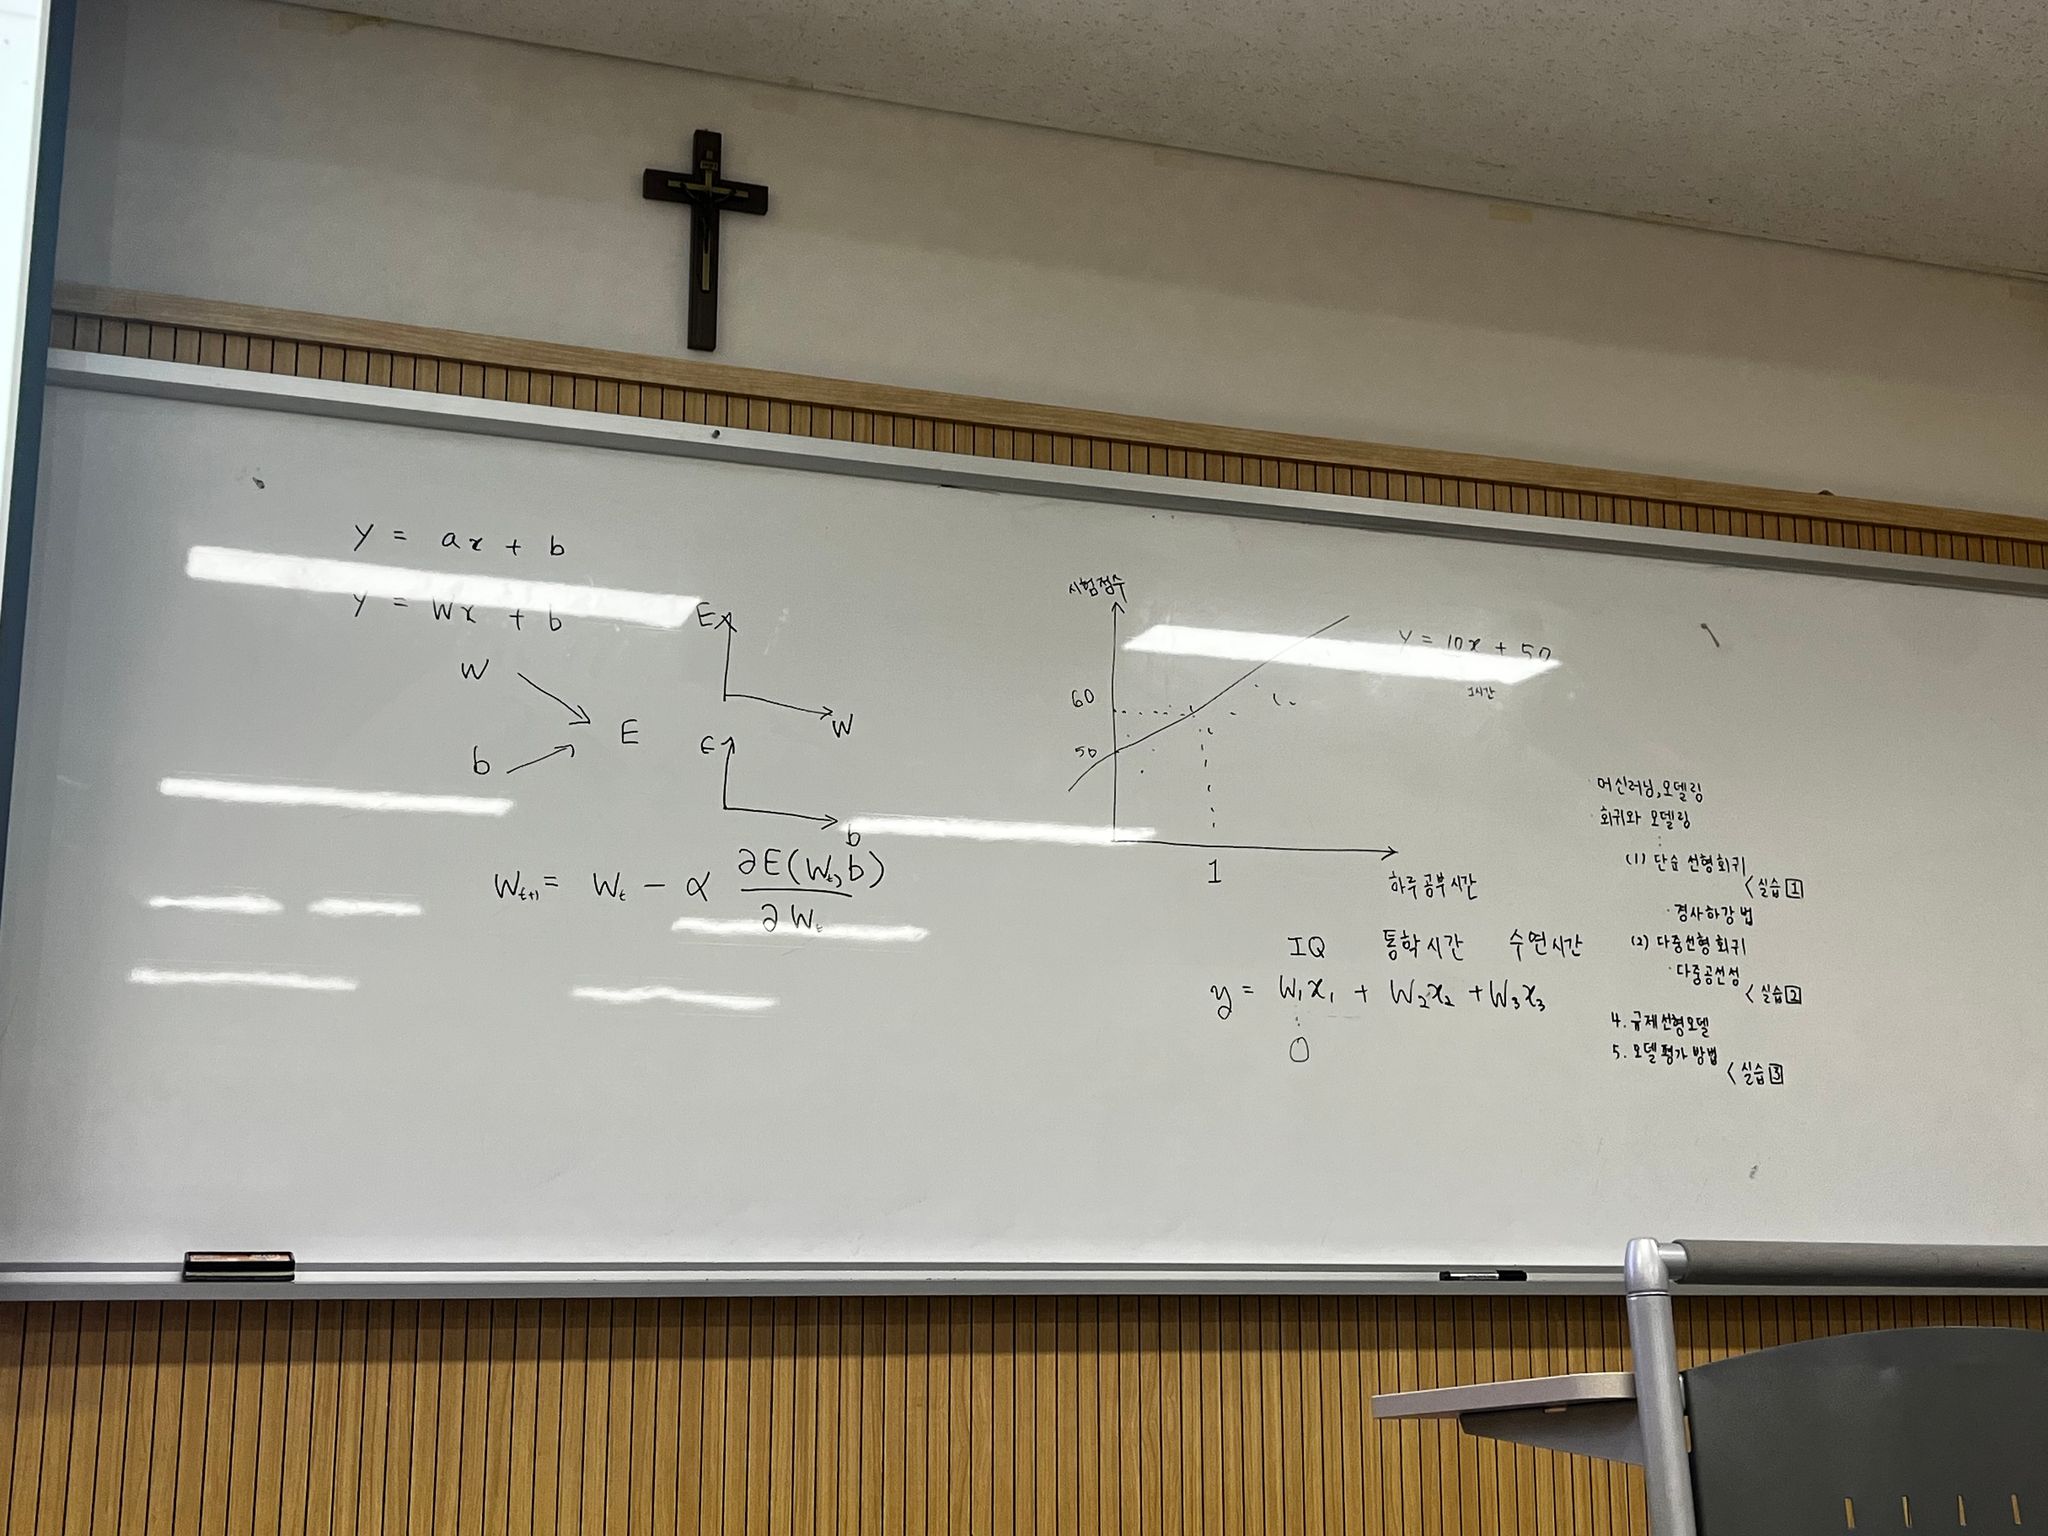 y = ax + b
y = Wx + b
W
b
E
E
W
E
b
W_{t+1} = W_t - α ∂E(W_t, b) / ∂W_t
시험점수
y = 10x + 50
1시간
60
50
1
하루 공부시간
IQ 통학시간 수면시간
y = W₁x₁ + W₂x₂ + W₃x₃
0
· 머신러닝, 모델링
· 회귀와 모델링
(1) 단순 선형회귀
< 실습 1
· 경사하강법
(2) 다중선형회귀
· 다중공선성
< 실습 2
4. 규제선형모델
5. 모델평가 방법
< 실습 3